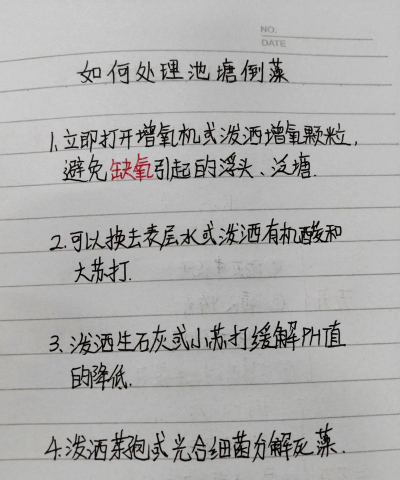 NO.
DATE
如何处理池塘倒藻
1、立即打开增氧机或泼洒增氧颗粒,
避免缺氧引起的浮头、泛塘.
2.可以换去表层水或泼洒有机酸和
大苏打.
3、泼洒生石灰或小苏打缓解PH值
的降低.
4.泼洒芽孢或光合细菌分解死藻.